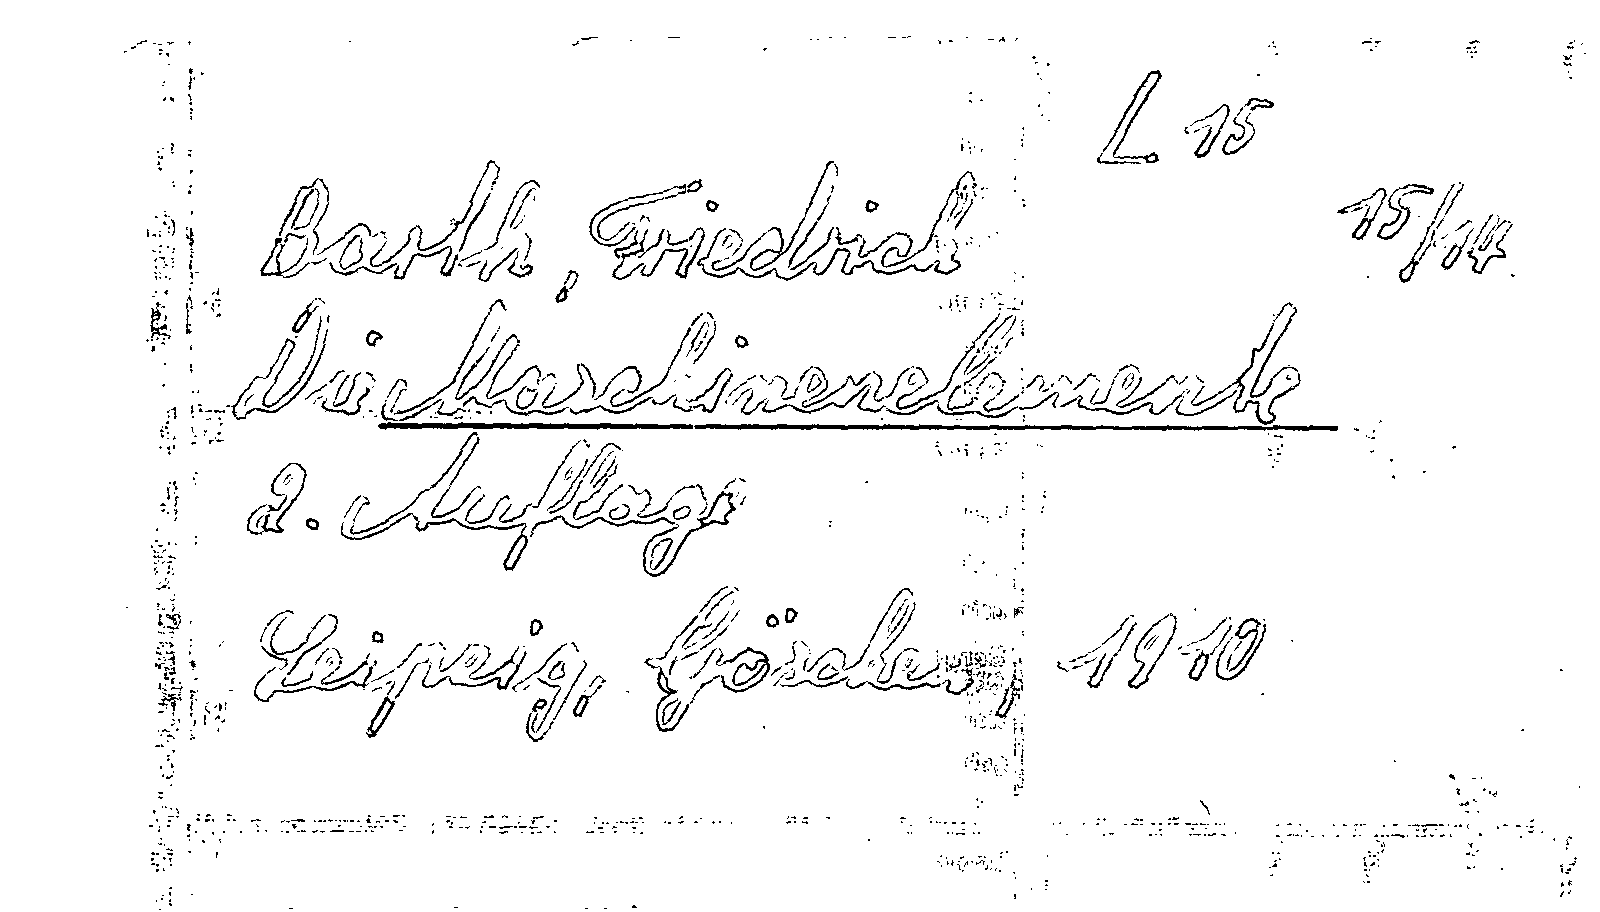 L 15
15/14
Barth, Friedrich
Die Maschinenelemente
2. Auflage
Leipzig, Göschen, 1910